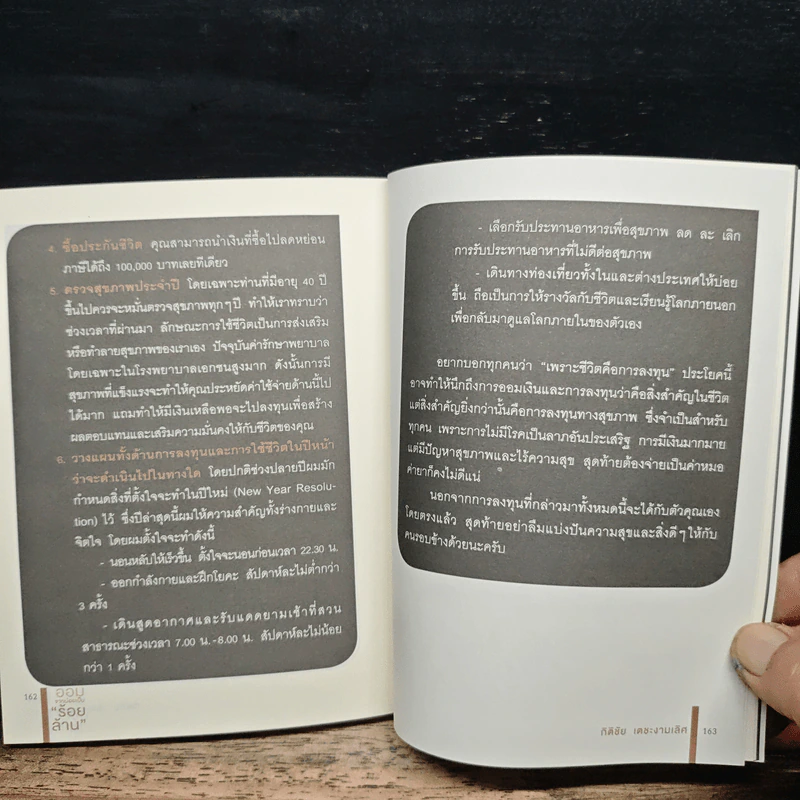 4. ซื้อประกันชีวิต คุณสามารถนำเงินที่ซื้อไปลดหย่อน
ภาษีได้ถึง 100,000 บาทเลยทีเดียว
5. ตรวจสุขภาพประจำปี โดยเฉพาะท่านที่มีอายุ 40 ปี
ขึ้นไปควรจะหมั่นตรวจสุขภาพทุกๆ ปี ทำให้เราทราบว่า
ช่วงเวลาที่ผ่านมา ลักษณะการใช้ชีวิตเป็นการส่งเสริม
หรือทำลายสุขภาพของเราเอง ปัจจุบันค่ารักษาพยาบาล
โดยเฉพาะในโรงพยาบาลเอกชนสูงมาก ดังนั้นการมี
สุขภาพที่แข็งแรงจะทำให้คุณประหยัดค่าใช้จ่ายด้านนี้ไป
ได้มาก แถมทำให้มีเงินเหลือพอจะไปลงทุนเพื่อสร้าง
ผลตอบแทนและเสริมความมั่นคงให้กับชีวิตของคุณ
6. วางแผนทั้งด้านการลงทุนและการใช้ชีวิตในปีหน้า
ว่าจะดำเนินไปในทางใด โดยปกติช่วงปลายปีผมมัก
กำหนดสิ่งที่ตั้งใจจะทำในปีใหม่ (New Year Resolu-
tion) ไว้ ซึ่งปีล่าสุดนี้ผมให้ความสำคัญทั้งร่างกายและ
จิตใจ โดยผมตั้งใจจะทำดังนี้
- นอนหลับให้เร็วขึ้น ตั้งใจจะนอนก่อนเวลา 22.30 น.
- ออกกำลังกายและฝึกโยคะ สัปดาห์ละไม่ต่ำกว่า
3 ครั้ง
- เดินสูดอากาศและรับแดดยามเช้าที่สวน
สาธารณะช่วงเวลา 7.00 น.-8.00 น. สัปดาห์ละไม่น้อย
กว่า 1 ครั้ง
162
ออม
"ร้อย
ล้าน"
- เลือกรับประทานอาหารเพื่อสุขภาพ ลด ละ เลิก
การรับประทานอาหารที่ไม่ดีต่อสุขภาพ
- เดินทางท่องเที่ยวทั้งในและต่างประเทศให้บ่อย
ขึ้น ถือเป็นการให้รางวัลกับชีวิตและเรียนรู้โลกภายนอก
เพื่อกลับมาดูแลโลกภายในของตัวเอง
อยากบอกทุกคนว่า "เพราะชีวิตคือการลงทุน" ประโยคนี้
อาจทำให้นึกถึงการออมเงินและการลงทุนว่าคือสิ่งสำคัญในชีวิต
แต่สิ่งสำคัญยิ่งกว่านั้นคือการลงทุนทางสุขภาพ ซึ่งจำเป็นสำหรับ
ทุกคน เพราะการไม่มีโรคเป็นลาภอันประเสริฐ การมีเงินมากมาย
แต่มีปัญหาสุขภาพและไร้ความสุข สุดท้ายต้องจ่ายเป็นค่าหมอ
ค่ายาก็คงไม่ดีแน่
นอกจากการลงทุนที่กล่าวมาทั้งหมดนี้จะได้กับตัวคุณเอง
โดยตรงแล้ว สุดท้ายอย่าลืมแบ่งปันความสุขและสิ่งดีๆ ให้กับ
คนรอบข้างด้วยนะครับ
กิติชัย เตชะงามเลิศ 163